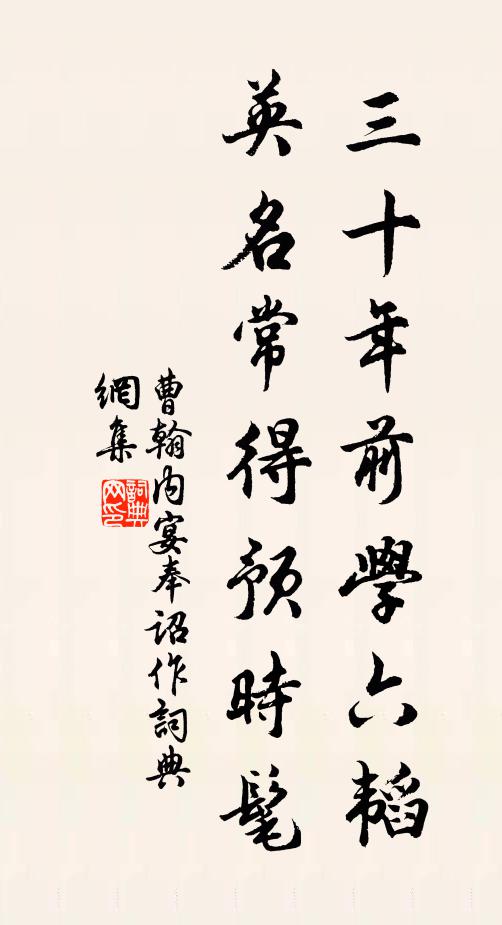 三十年前學六韜
英名常得預時髦
曹翰内宴奉詔作詞典
網集
詞典
网印